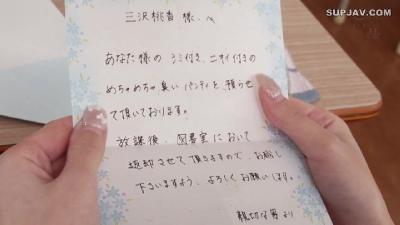 SUPJAV.COM
三沢桃香 様.へ
あなた様の シミ付き、ニオイ付きの
めちゃめちゃ臭い パンティを、預らせ
て頂いております。
放課後、図書室において
返却させて頂きますので、お越し
下さいますよう、よろしくお願いします。
親切な男より